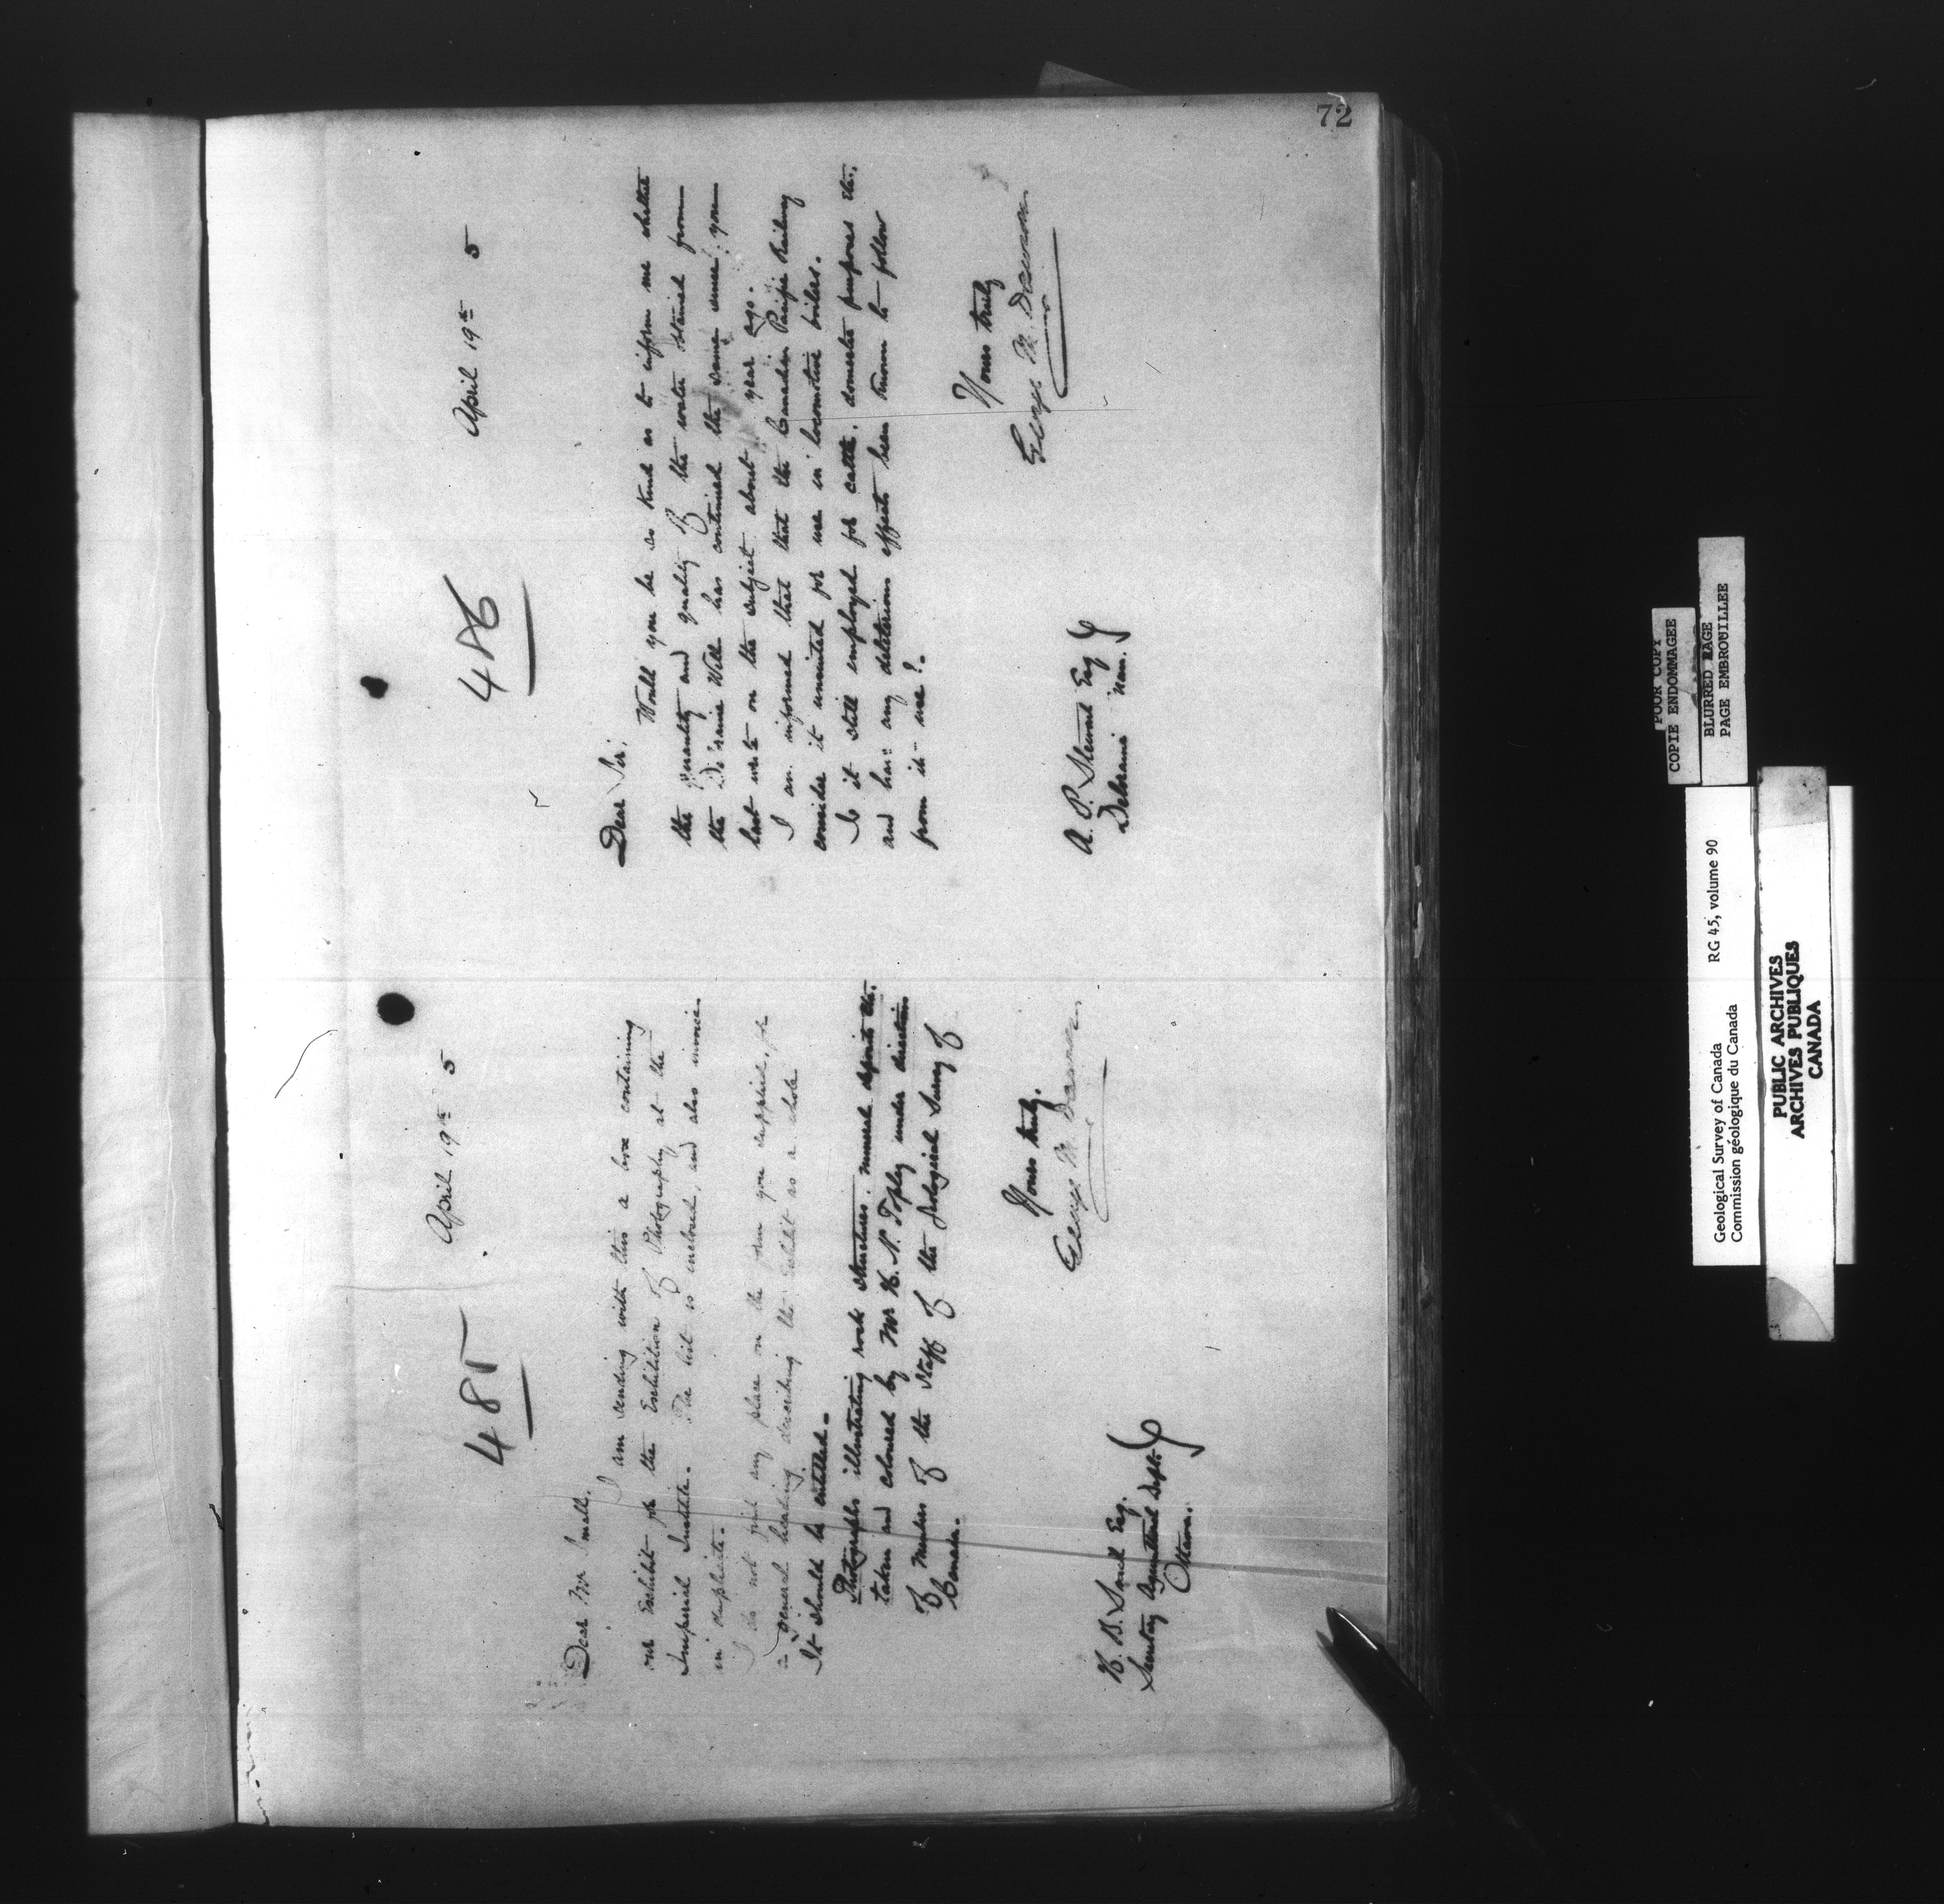 72
485
April 19th 5
Dear Mr Small,
I am sending with this a box containing
our Exhibit for the Exhibition of Photography at the
Imperial Institute. The list is enclosed, and also invoice
in duplicate.
I do not find any place on the form you supplied, for
a general heading describing the Exhibit as a whole
It should be entitled -
Photographs illustrating rock structures, mineral deposits etc.
taken and coloured by Mr H. N. Topley under direction
of Members of the Staff of the Geological Survey of
Canada.
Yours truly.
George M. Dawson
H. B. Small Esq.
Secretary Agricultural Dept.
Ottawa.
486
April 19th 5
Dear Sir,
Would you be so kind as to inform me whether
the quantity and quality of the water obtained from
the Deloraine Well has continued the same since you
last wrote on the subject about year ago.
I am informed that that the Canadian Pacific Railway
consider it unsuited for use in locomotive boilers.
Is it still employed for cattle, domestic purposes etc.
and have any deleterious effects been known to follow
from its use?
Yours truly
George M. Dawson
A. P. Stewart Esq
Deloraine Man.
POOR COPY
COPIE ENDOMMAGEE
BLURRED PAGE
PAGE EMBROUILLEE
Geological Survey of Canada RG 45, volume 90
Commission géologique du Canada
PUBLIC ARCHIVES
ARCHIVES PUBLIQUES
CANADA